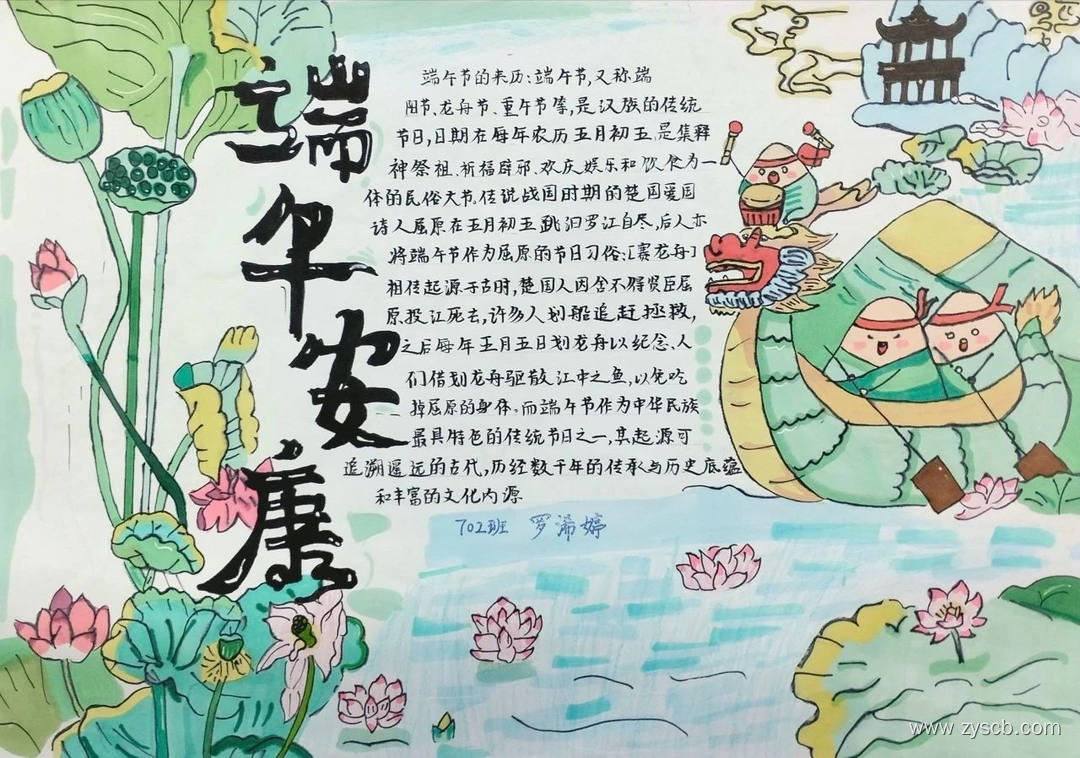 端午安康
端午节的来历：端午节，又称端
阳节、龙舟节、重午节等，是汉族的传统
节日，日期在每年农历五月初五，是集释
神祭祖、祈福辟邪、欢庆娱乐和饮食为一
体的民俗大节。传说战国时期的楚国爱国
诗人屈原在五月初五跳汨罗江自尽，后人亦
将端午节作为屈原的节日习俗：[赛龙舟]
相传起源于古时，楚国人因舍不得贤臣屈
原投江死去，许多人划船追赶拯救，
之后每年五月五日划龙舟以纪念、人
们借划龙舟驱散江中之鱼，以免吃
掉屈原的身体。而端午节作为中华民族
最具特色的传统节日之一，其起源可
追溯遥远的古代，历经数千年的传承与历史底蕴
和丰富的文化内源
702班 罗浠婷
www.zyscb.com